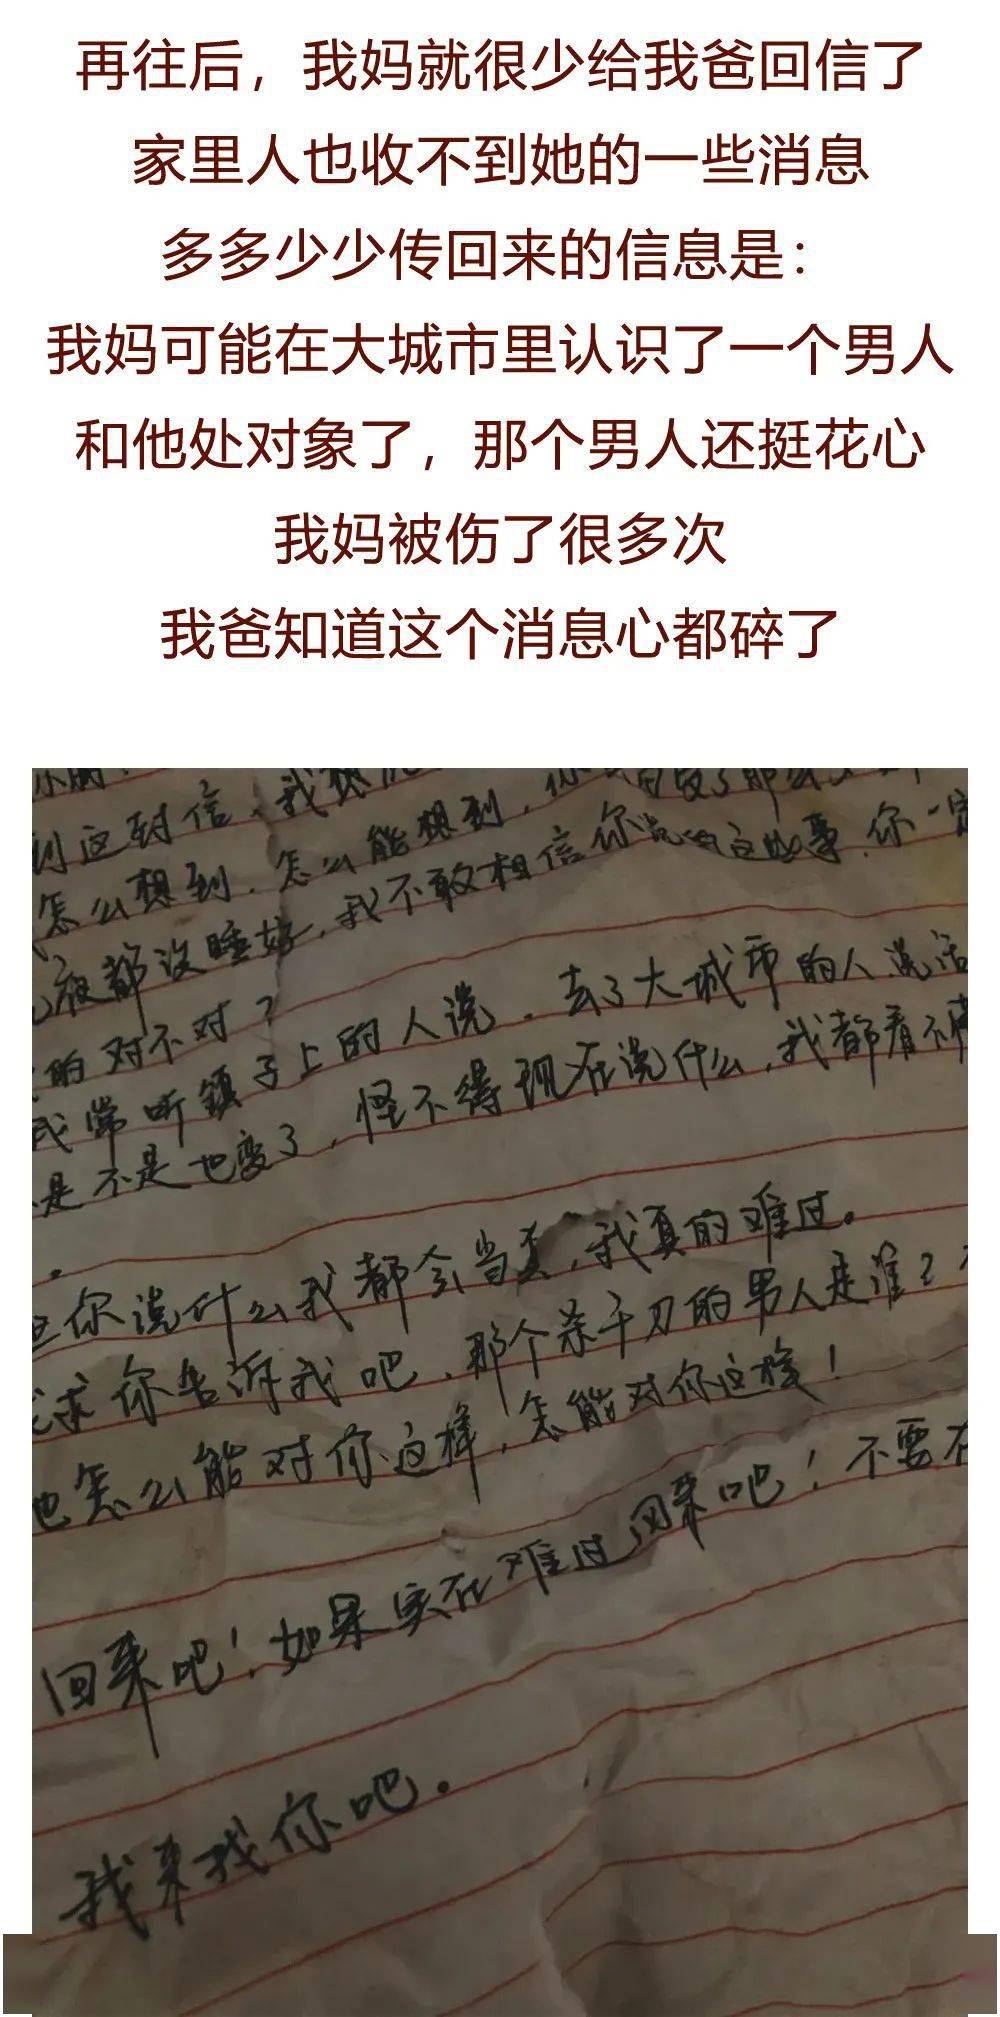 再往后，我妈就很少给我爸回信了
家里人也收不到她的一些消息
多多少少传回来的信息是：
我妈可能在大城市里认识了一个男人
和他处对象了，那个男人还挺花心
我妈被伤了很多次
我爸知道这个消息心都碎了
到这封信、我想
怎么想到、怎么能想到，你
夜都没睡好，我不敢相信你说的这些事，你一定
的对不对？
我常听镇子上的人说，去了大城市的人说话
是不是也变了，怪不得现在说什么，我都看不懂
。
你说什么我都会当真，我真的难过。
求你告诉我吧、那个杀千刀的男人是谁？
他怎么能对你这样，怎能对你这样！
回来吧！如果实在难过，回来吧！不要在
我来找你吧。